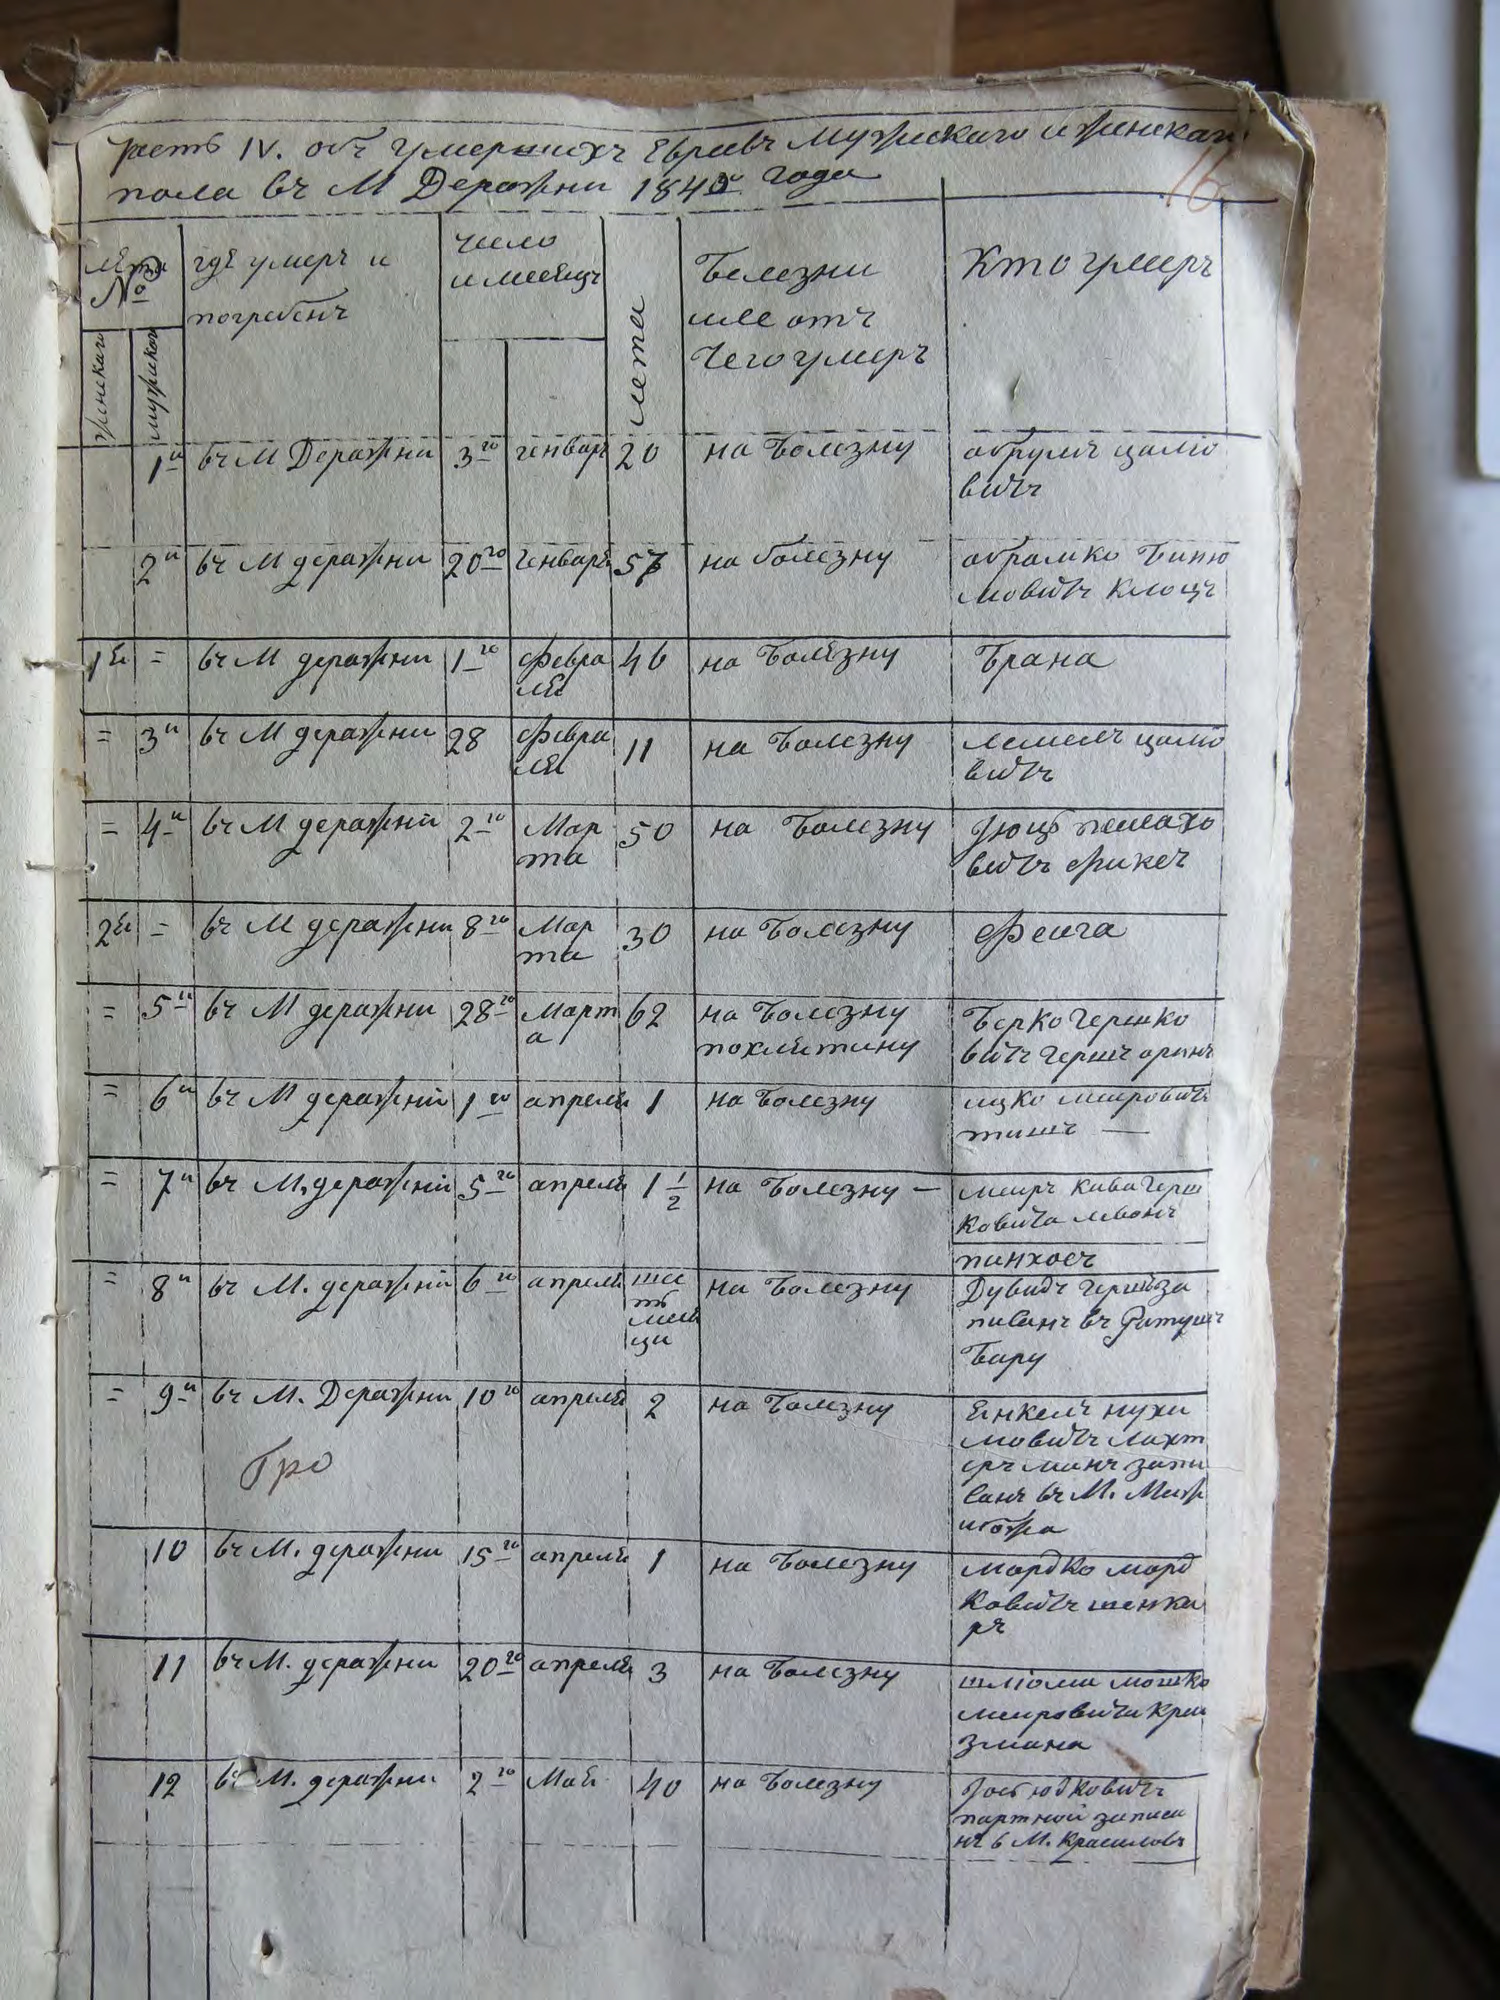 Часть IV. объ умершихъ Евреевъ мужескаго и женскаго
пола въ М Деражни 1840го года
16
№
женскаго
мужскаго
где умеръ и
погребенъ
число
и месецъ
лета
Болезни
иле отъ
чего умеръ
Кто умеръ
1й въ М Деражни 3го генваря 20 на Болезну абрумъ цалю
вичъ
2й въ М деражни 20го генваря 57 на болезну абрамко Биню
мовичъ клоцъ
1я = въ М деражни 1го февра 46 на Болезну Брана
ля
= 3й въ М деражни 28 февра 11 на Болезну лемелъ цалю
ля вичъ
= 4й въ М деражни 2го Мар 50 на Болезну пейсахо
та вичъ фиксъ
2я = въ М деражни 8го Мар 30 на Болезну Фейга
та
= 5й въ М деражни 28го Март 62 на Болезну Берко Гершко
а вичъ
= 6й въ М деражни 1го апреля 1 на Болезну ицко меировичъ
тишъ —
= 7й въ М. деражни 5го апреля 1 1/2 на Болезну — меиръ кива герш
ковича
пинхосъ
= 8й въ М. деражни 6го апреля шес на Болезну Дувидъ за
ть писанъ въ Ратуши
меся Бару
ци
= 9й въ М. Деражни 10го апреля 2 на Болезну Янкелъ нухи
мовичъ Лахт
ерманъ запи
санъ въ М. Меж
ибожа
10 въ М. деражни 15го апреля 1 на Болезну мардко мард
ковичъ шенка
ръ
11 въ М. деражни 20го апреля 3 на Болезну шліома мошко
меировича Крей
змана
12 въ М. деражни 2го Мая 40 на Болезну юдковичъ
партной записа
нъ в М. Красиловъ